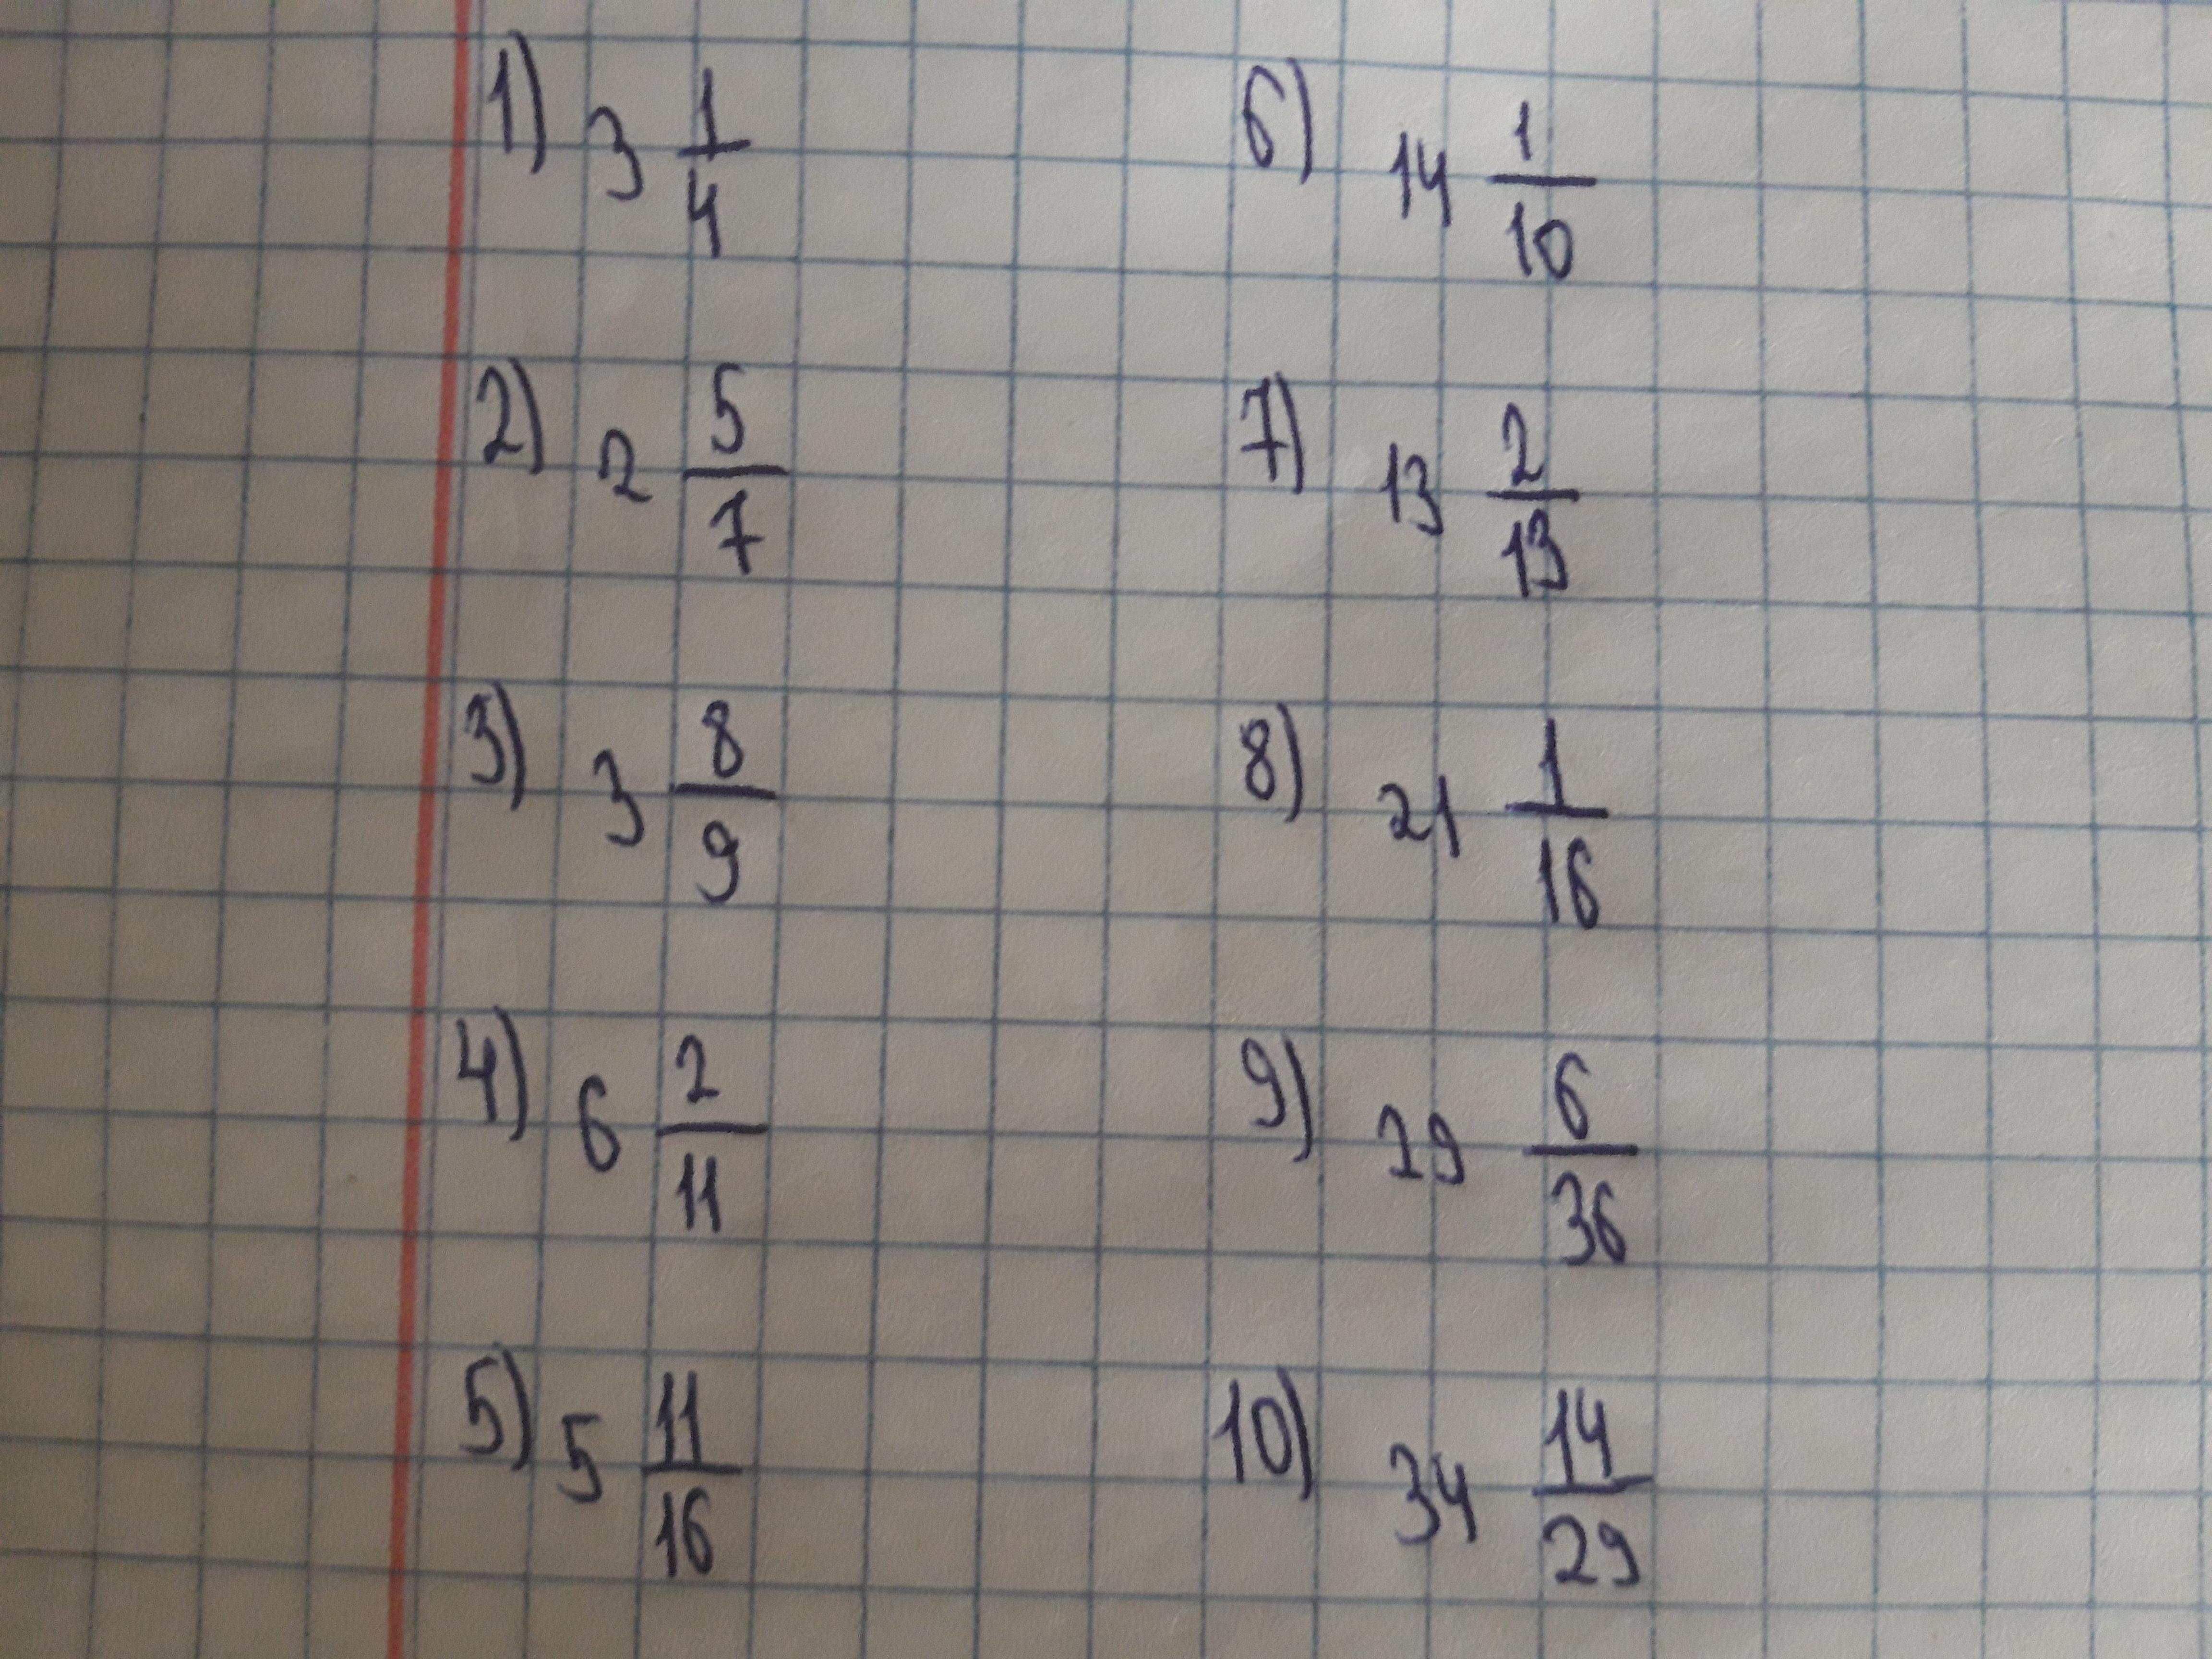 1) 3 1/4
2) 2 5/7
3) 3 8/9
4) 6 2/11
5) 5 11/16
6) 14 1/10
7) 13 2/13
8) 21 1/16
9) 29 6/36
10) 34 14/29